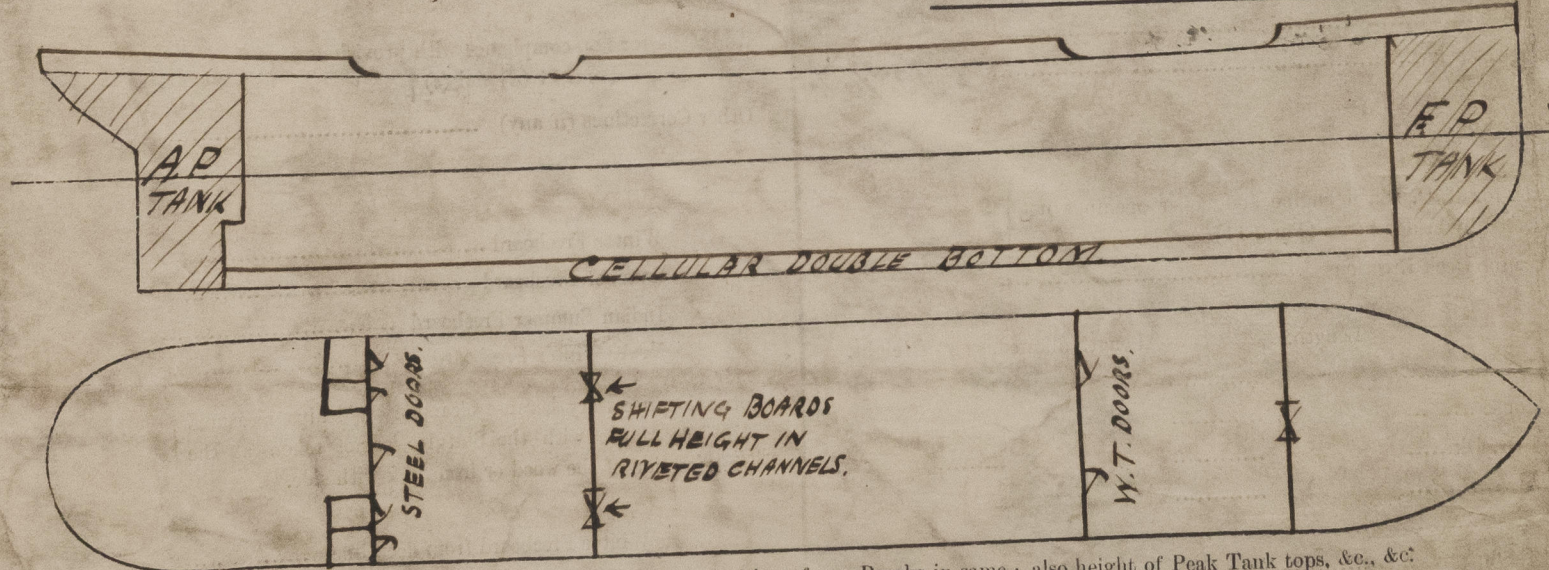 A P
TANK
F P
TANK
CELLULAR DOUBLE BOTTOM
STEEL DOORS.
SHIFTING BOARDS
FULL HEIGHT IN
RIVETED CHANNELS.
W.T. DOORS.
also height of Peak Tank tops, &c., &c.